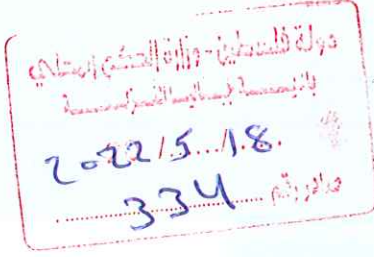 دولة فلسطين - وزارة الحكم المحلي
2022/5/18
صادر رقم 334